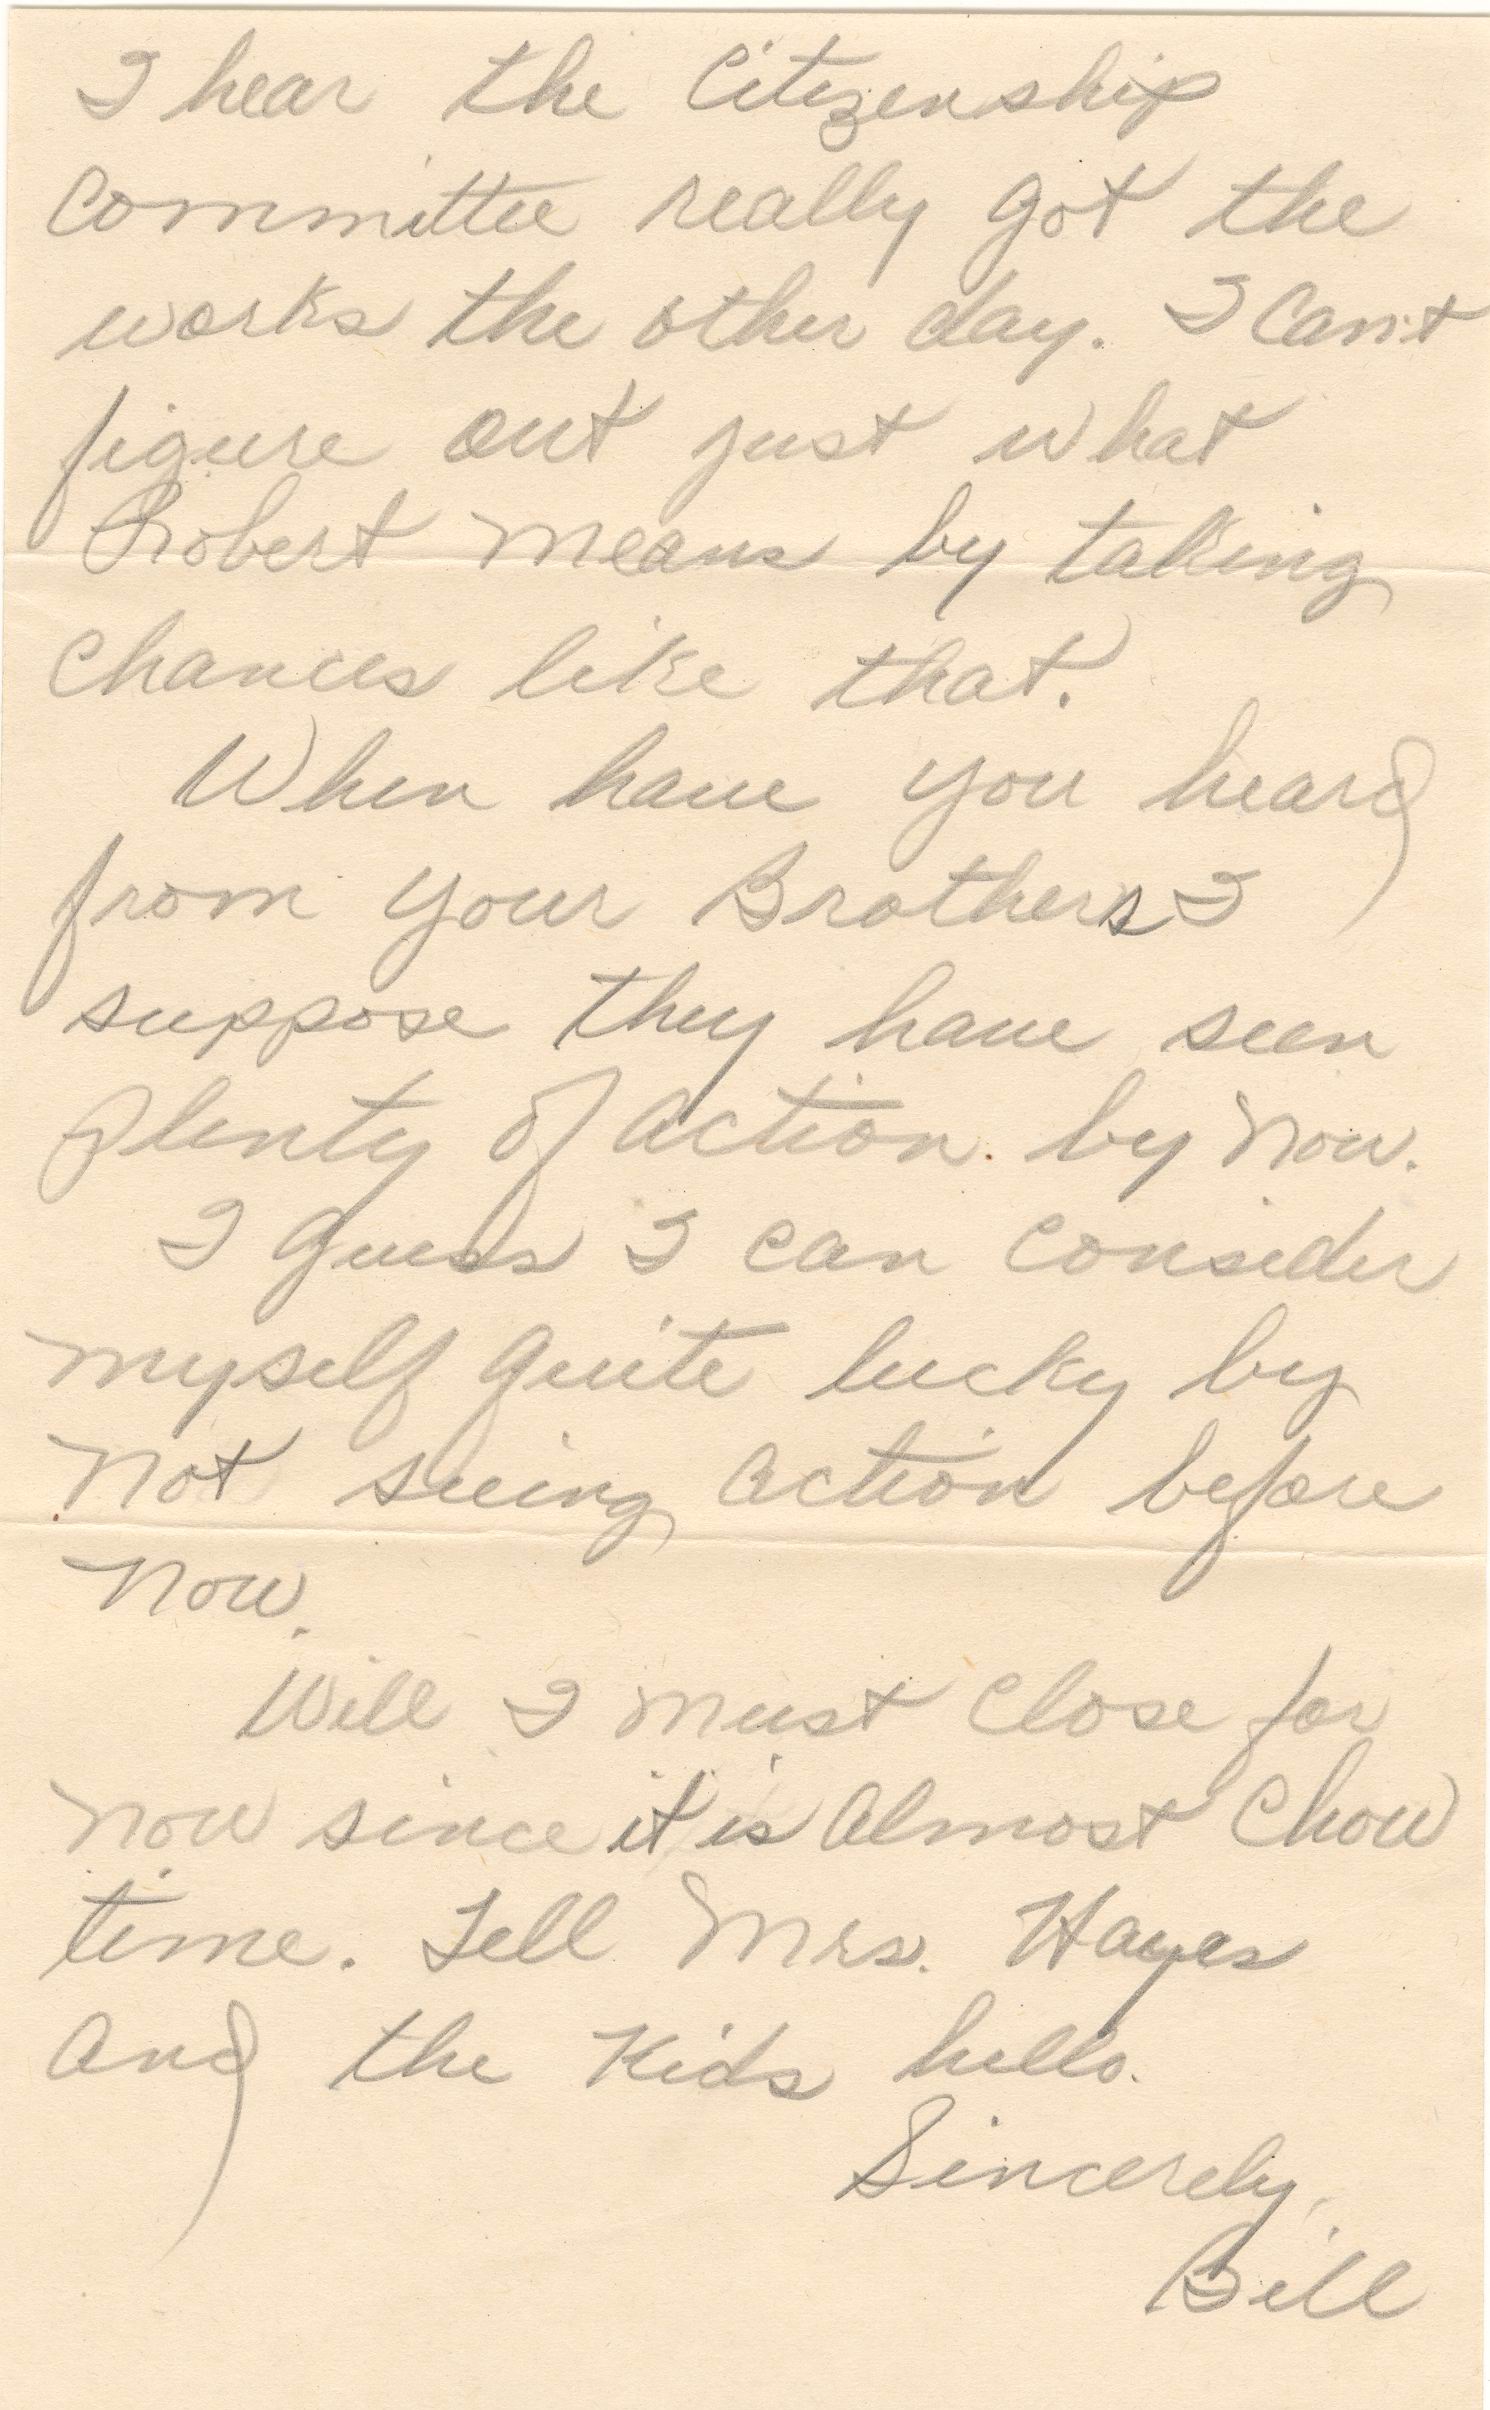 I hear the Citizenship
Committee really got the
works the other day. I Can't
figure out just what
Robert means by taking
Chances like that.
When have you heard
from your Brothers I
suppose they have seen
plenty of action by now.
I guess I can consider
myself quite lucky by
not seeing action before
now.
Will I must close for
now since it is almost Chow
time. Tell Mrs. Hayes
and the Kids hello.
Sincerely,
Bill